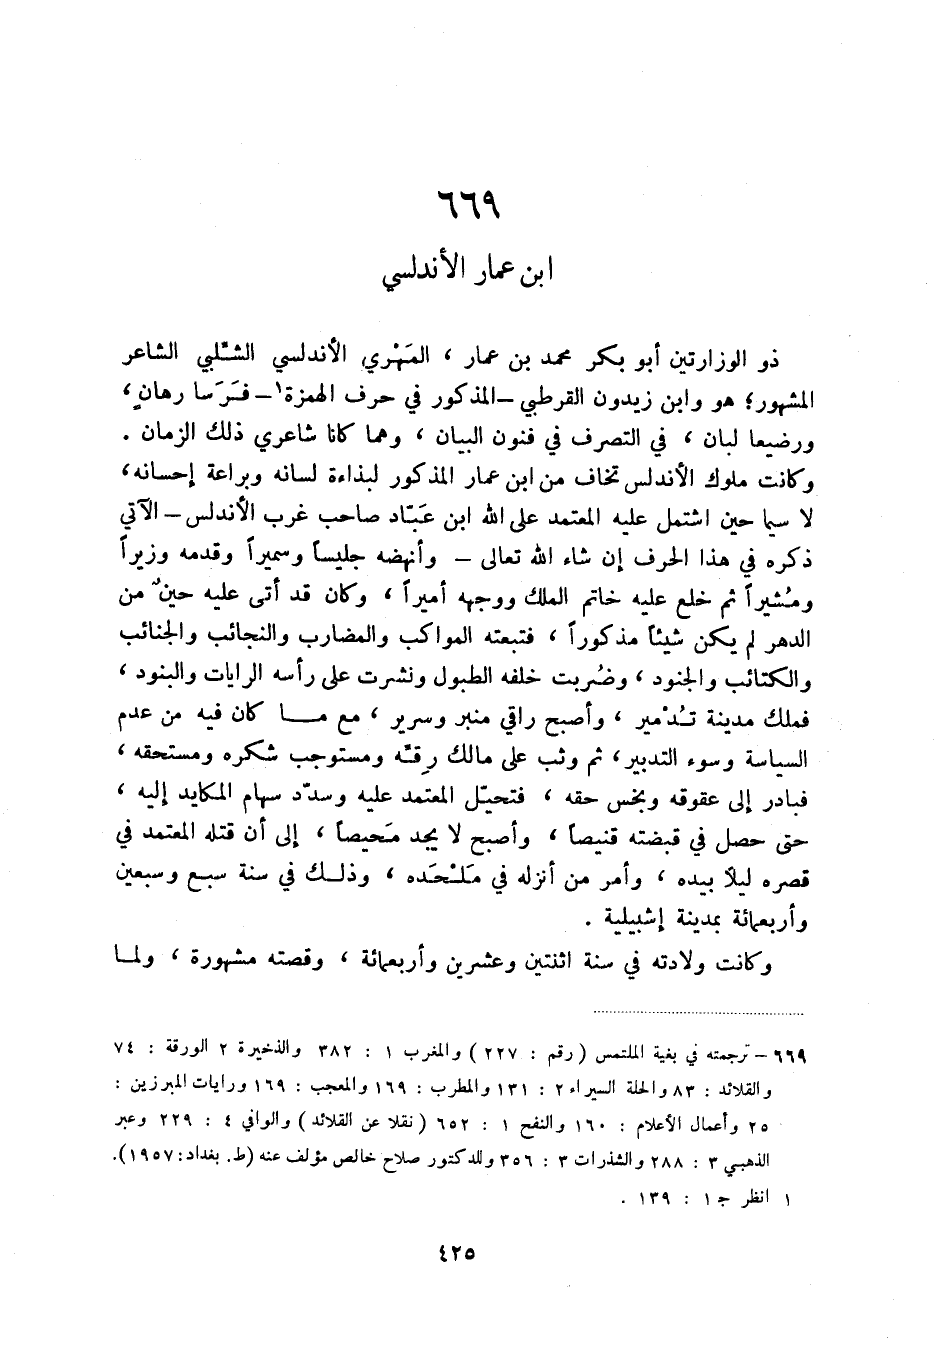 ٦٦٩
ابن عمار الأندلسي
ذو الوزارتين أبو بكر محمد بن عمار ، المَهْري الأندلسي الشّلْبي الشاعر
المشهور؛ هو وابن زيدون القرطبي -المذكور في حرف الهمزة١- فَرَسا رهانٍ ،
ورضيعا لبان ، في التصرف في فنون البيان ، وهما كانا شاعري ذلك الزمان .
وكانت ملوك الأندلس تخاف من ابن عمار المذكور لبذاءة لسانه وبراعة إحسانه ،
لا سيما حين اشتمل عليه المعتمد على الله ابن عبّاد صاحب غرب الأندلس - الآتي
ذكره في هذا الحرف إن شاء الله تعالى - وأنهضه جليساً وسميراً وقدمه وزيراً
ومُشيراً ثم خلع عليه خاتم الملك ووجهه أميراً ، وكان قد أتى عليه حينٌ من
الدهر لم يكن شيئاً مذكوراً ، فتبعته المواكب والمضارب والنجائب والجنائب
والكتائب والجنود ، وضُربت خلفه الطبول ونشرت على رأسه الرايات والبنود ،
فملك مدينة تُدْمير ، وأصبح راقي منبر وسرير ، مع مــا كان فيه من عدم
السياسة وسوء التدبير ، ثم وثب على مالك رِقّه ومستوجب شكره ومستحقه ،
فبادر إلى عقوقه وبخس حقه ، فتحيّل المعتمد عليه وسدّد سهام المكايد إليه ،
حتى حصل في قبضته قنيصاً ، وأصبح لا يجد مَحيصاً ، إلى أن قتله المعتمد في
قصره ليلاً بيده ، وأمر من أنزله في مَلْحَده ، وذلــك في سنة سبع وسبعين
وأربعمائة بمدينة إشبيلية .
وكانت ولادته في سنة اثنتين وعشرين وأربعمائة ، وقصته مشهورة ، ولمــا
٦٦٩ - ترجمته في بغية الملتمس ( رقم : ٢٢٧ ) والمغرب ١ : ٣٨٢ والذخيرة ٢ الورقة : ٧٤
والقلائد : ٨٣ والحلة السيراء ٢ : ١٣١ والمطرب : ١٦٩ والمعجب : ١٦٩ ورايات المبرزين :
٢٥ وأعمال الأعلام : ١٦٠ والنفح ١ : ٦٥٢ ( نقلا عن القلائد ) والوافي ٤ : ٢٢٩ وعبر
الذهبي ٣ : ٢٨٨ والشذرات ٣ : ٣٥٦ وللدكتور صلاح خالص مؤلف عنه (ط. بغداد: ١٩٥٧).
١ انظر ج ١ : ١٣٩ .
٤٢٥